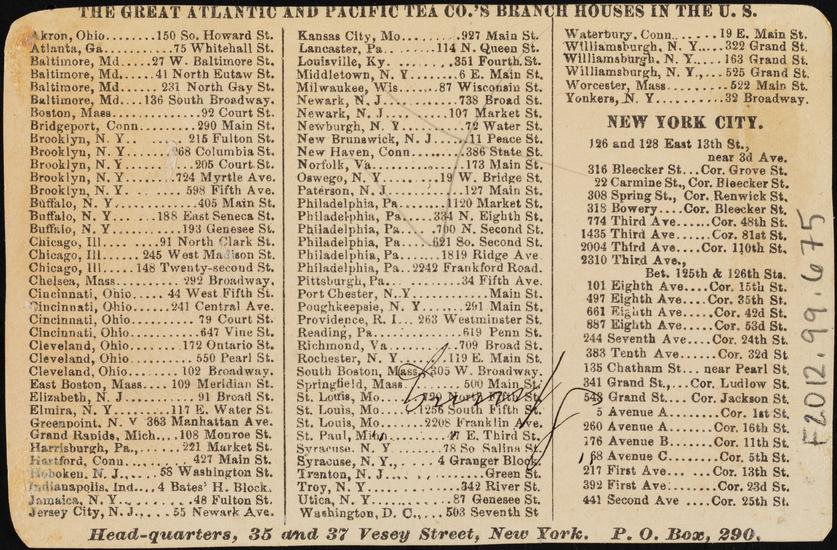 THE GREAT ATLANTIC AND PACIFIC TEA CO.'S BRANCH HOUSES IN THE U. S.
Akron, Ohio......150 So. Howard St.
Atlanta, Ga..........75 Whitehall St.
Baltimore, Md....27 W. Baltimore St.
Baltimore, Md.....41 North Eutaw St.
Baltimore, Md......231 North Gay St.
Baltimore, Md...136 South Broadway.
Boston, Mass..............92 Court St.
Bridgeport, Conn.........290 Main St.
Brooklyn, N. Y..........215 Fulton St.
Brooklyn, N. Y.......268 Columbia St.
Brooklyn, N. Y...........205 Court St.
Brooklyn, N. Y........724 Myrtle Ave.
Brooklyn, N. Y..........598 Fifth Ave.
Buffalo, N. Y..............405 Main St.
Buffalo, N. Y......188 East Seneca St.
Buffalo, N. Y............193 Genesee St.
Chicago, Ill.........91 North Clark St.
Chicago, Ill......245 West Madison St.
Chicago, Ill.....148 Twenty-second St.
Chelsea, Mass.........292 Broadway.
Cincinnati, Ohio....44 West Fifth St.
Cincinnati, Ohio.....241 Central Ave.
Cincinnati, Ohio..........79 Court St.
Cincinnati, Ohio..........647 Vine St.
Cleveland, Ohio.......172 Ontario St.
Cleveland, Ohio.........550 Pearl St.
Cleveland, Ohio.......102 Broadway.
East Boston, Mass....109 Meridian St.
Elizabeth, N. J............91 Broad St.
Elmira, N. Y.........117 E. Water St.
Greenpoint, N. Y 363 Manhattan Ave.
Grand Rapids, Mich...108 Monroe St.
Harrisburgh, Pa.,......221 Market St.
Hartford, Conn..........427 Main St.
Hoboken, N. J.,....58 Washington St.
Indianapolis, Ind....4 Bates' H. Block.
Jamaica, N. Y............48 Fulton St.
Jersey City, N. J.,...55 Newark Ave.
Kansas City, Mo.........927 Main St.
Lancaster, Pa........114 N. Queen St.
Louisville, Ky.........351 Fourth St.
Middletown, N. Y.......6 E. Main St.
Milwaukee, Wis....87 Wisconsin St.
Newark, N. J...........738 Broad St.
Newark, N. J..........107 Market St.
Newburgh, N. Y.........72 Water St.
New Brunswick, N. J.....11 Peace St.
New Haven, Conn.......386 State St.
Norfolk, Va.............173 Main St.
Oswego, N. Y........19 W. Bridge St.
Paterson, N. J...........127 Main St.
Philadelphia, Pa......1120 Market St.
Philadelphia, Pa...334 N. Eighth St.
Philadelphia, Pa...700 N. Second St.
Philadelphia, Pa...621 So. Second St.
Philadelphia, Pa.....1819 Ridge Ave
Philadelphia, Pa..2242 Frankford Road.
Pittsburg, Pa............34 Fifth Ave.
Port Chester, N. Y..........Main St.
Poughkeepsie, N. Y.....291 Main St.
Providence, R. I...263 Westminster St.
Reading, Pa............619 Penn St.
Richmond, Va.........709 Broad St.
Rochester, N. Y.....119 E. Main St.
South Boston, Mass, 305 W. Broadway.
Springfield, Mass.......500 Main St.
St. Louis, Mo
St. Louis, Mo.....1256 South Fifth St.
St. Louis, Mo......2208 Franklin Ave.
St. Paul, Minn.......47 E. Third St.
Syracuse, N. Y.......78 So Salina St.
Syracuse, N. Y.,...4 Granger Block.
Trenton, N. J.,...........Green St.
Troy, N. Y.............342 River St.
Utica, N. Y..........87 Genesee St.
Washington, D. C.,...503 Seventh St
Waterbury, Conn....19 E. Main St.
Williamsburgh, N. Y...322 Grand St.
Williamsburgh, N. Y...163 Grand St.
Williamsburgh, N. Y...525 Grand St.
Worcester, Mass........522 Main St.
Yonkers, N. Y..........32 Broadway.
NEW YORK CITY.
126 and 128 East 13th St.,
near 3d Ave.
316 Bleecker St...Cor. Grove St.
22 Carmine St., Cor. Bleecker St.
308 Spring St., Cor. Renwick St.
318 Bowery....Cor. Bleecker St.
774 Third Ave......Cor. 48th St.
1435 Third Ave.....Cor. 81st St.
2004 Third Ave...Cor. 110th St.
2310 Third Ave.,
Bet. 125th & 126th Sts.
101 Eighth Ave....Cor. 15th St.
497 Eighth Ave....Cor. 35th St.
661 Eighth Ave....Cor. 42d St.
887 Eighth Ave....Cor. 53d St.
244 Seventh Ave...Cor. 24th St.
383 Tenth Ave......Cor. 32d St
135 Chatham St...near Pearl St.
341 Grand St.,...Cor. Ludlow St.
548 Grand St....Cor. Jackson St.
5 Avenue A.........Cor. 1st St.
260 Avenue A......Cor. 16th St.
176 Avenue B......Cor. 11th St.
68 Avenue C........Cor. 5th St.
217 First Ave.......Cor. 13th St.
392 First Ave.......Cor. 23d St.
441 Second Ave....Cor. 25th St.
Head-quarters, 35 and 37 Vesey Street, New York. P. O. Box, 290.
F2012.99.675